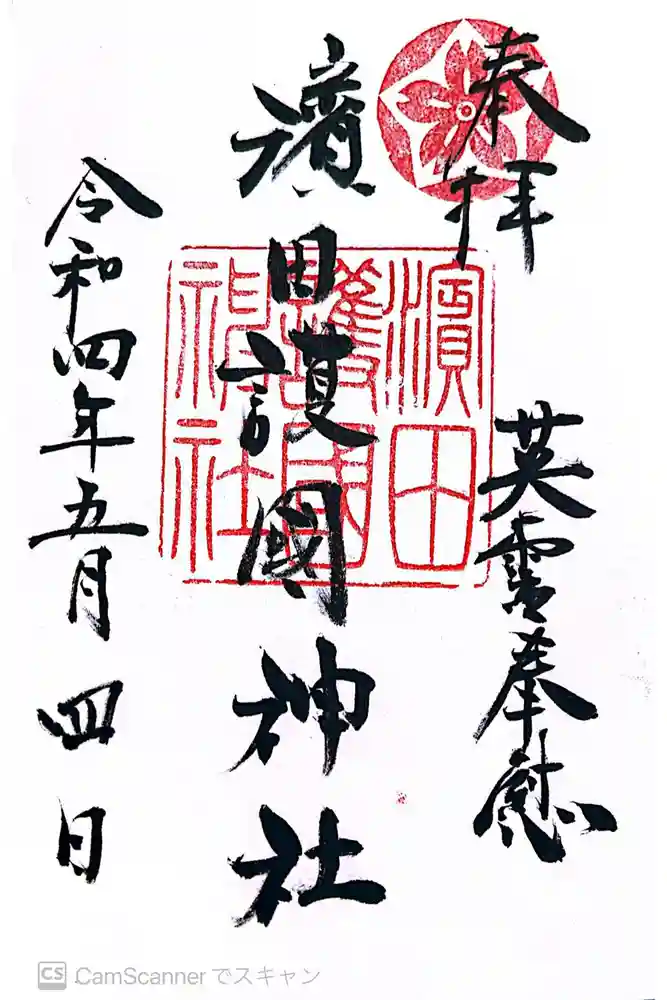 奉拝
英霊奉慰
濱田護國神社
濱田
護國
神社
令和四年五月四日
CS CamScanner でスキャン